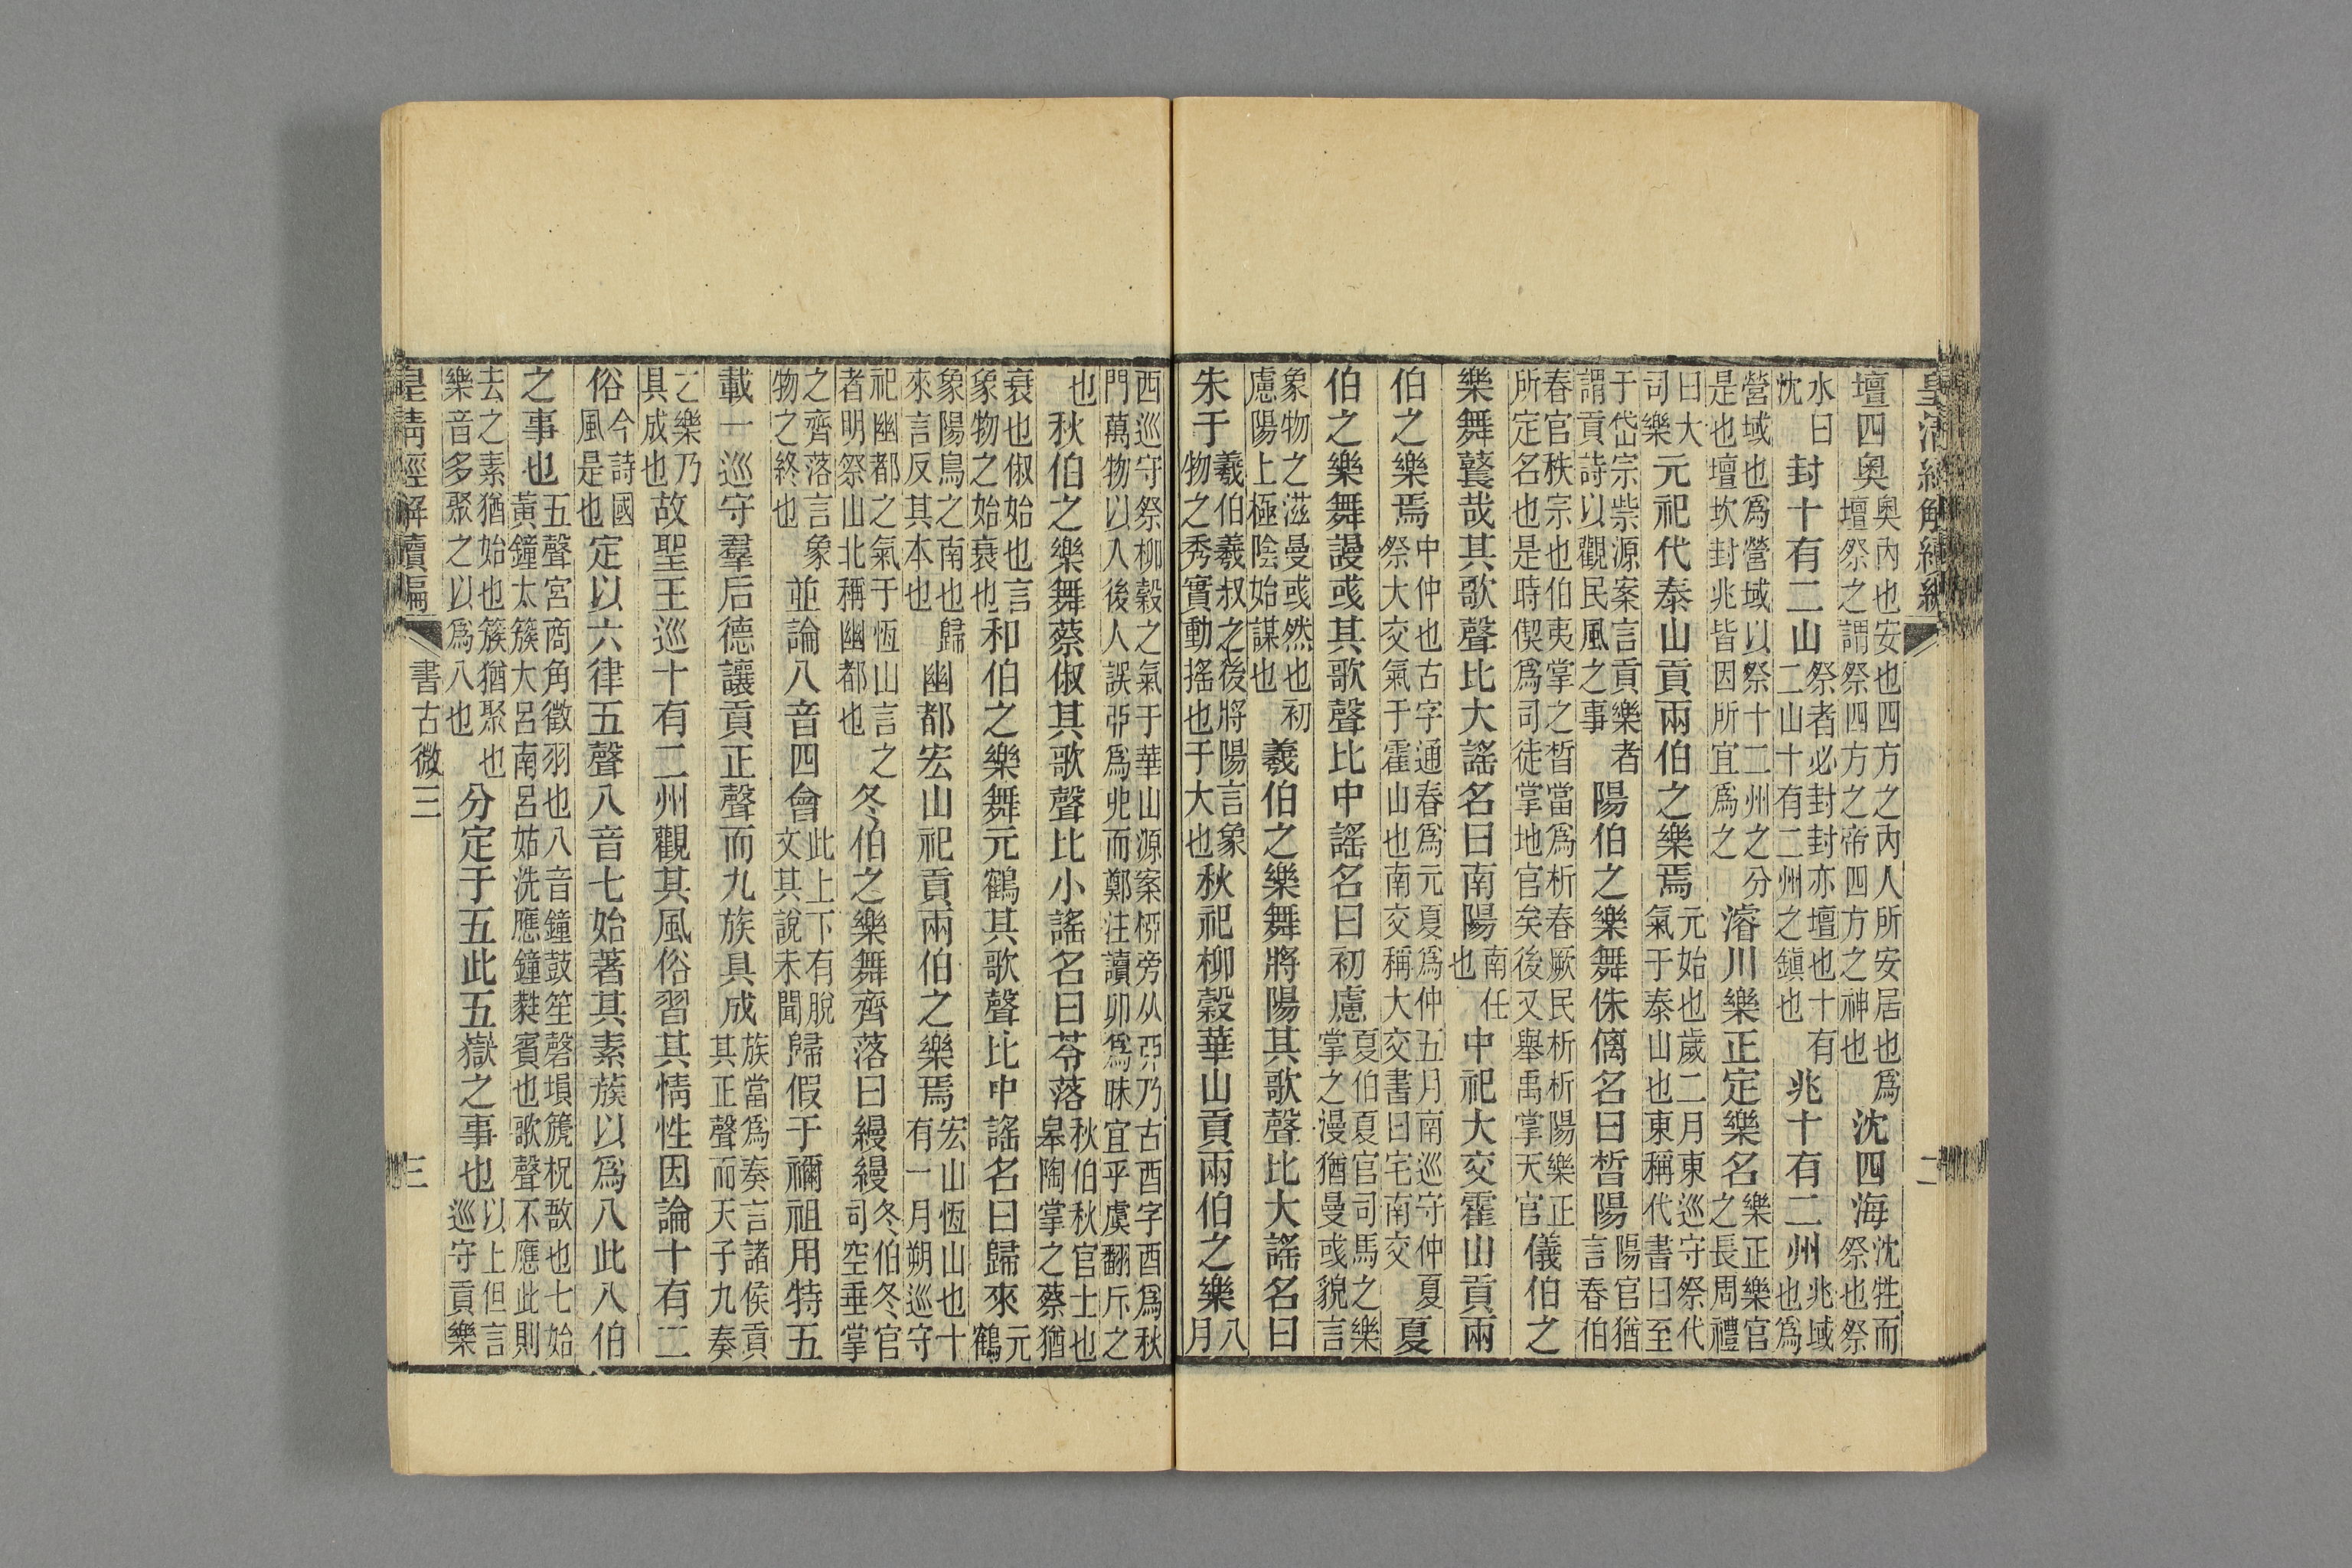 皇清經解續編 二
壇四奧奧內也安也四方之內人所安居也爲壇祭之謂祭四方之帝四方之神也沈四海沈牲而祭也祭
水曰沈封十有二山祭者必封封亦壇也十有二山十有二州之鎭也兆十有二州兆域也爲
營域也爲營域以祭十二州之分是也壇坎封兆皆因所宜爲之濬川樂正定樂名樂正樂官之長周禮
曰大司樂元祀代泰山貢兩伯之樂焉元始也歲二月東巡守祭代氣于泰山也東稱代書曰至
于岱宗祡源案言貢樂者謂貢詩以觀民風之事陽伯之樂舞侏㒧名曰皙陽陽官猶言春伯
春官秩宗也伯夷掌之皙當爲析春厥民析析陽樂正所定名也是時偰爲司徒掌地官矣後又舉禹掌天官儀伯之
樂舞鼚哉其歌聲比大謠名曰南陽南任也中祀大交霍山貢兩
伯之樂焉中仲也古字通春爲元夏爲仲五月南巡守仲夏祭大交氣于霍山也南交稱大交書曰宅南交夏
伯之樂舞謾彧其歌聲比中謠名曰初慮夏伯夏官司馬之樂掌之漫猶曼彧貌言
象物之滋曼彧然也初慮陽上極陰始謀也羲伯之樂舞將陽其歌聲比大謠名曰
朱于羲伯羲叔之後將陽言象物之秀實動搖也于大也秋祀柳穀華山貢兩伯之樂八月
西巡守祭柳穀之氣于華山源案桺旁从丣乃古酉字酉爲秋門萬物以入後人誤丣爲丱而鄭注讀卯爲昧宜乎虞翻斥之
也秋伯之樂舞蔡俶其歌聲比小謠名曰苓落秋伯秋官士也皋陶掌之蔡猶
衰也俶始也言象物之始衰也和伯之樂舞元鶴其歌聲比中謠名曰歸來元鶴
象陽鳥之南也歸來言反其本也幽都宏山祀貢兩伯之樂焉宏山恆山也十有一月朔巡守
祀幽都之氣于恆山言之者明祭山北稱幽都也冬伯之樂舞齊落曰縵縵冬伯冬官司空垂掌
之齊落言象物之終也並論八音四會此上下有脫文其說未聞歸假于禰祖用特五
載一巡守羣后德讓貢正聲而九族具成族當爲奏言諸侯貢其正聲而天子九奏
之樂乃具成也故聖王巡十有二州觀其風俗習其情性因論十有二
俗今詩國風是也定以六律五聲八音七始著其素蔟以爲八此八伯
之事也五聲宮商角徵羽也八音鐘鼓笙磬塤篪柷敔也七始黃鐘太簇大呂南呂姑洗應鐘蕤賓也歌聲不應此則
去之素猶始也簇猶聚也樂音多聚之以爲八也分定于五此五嶽之事也以上但言巡守貢樂
皇清經解續編 書古微三 三